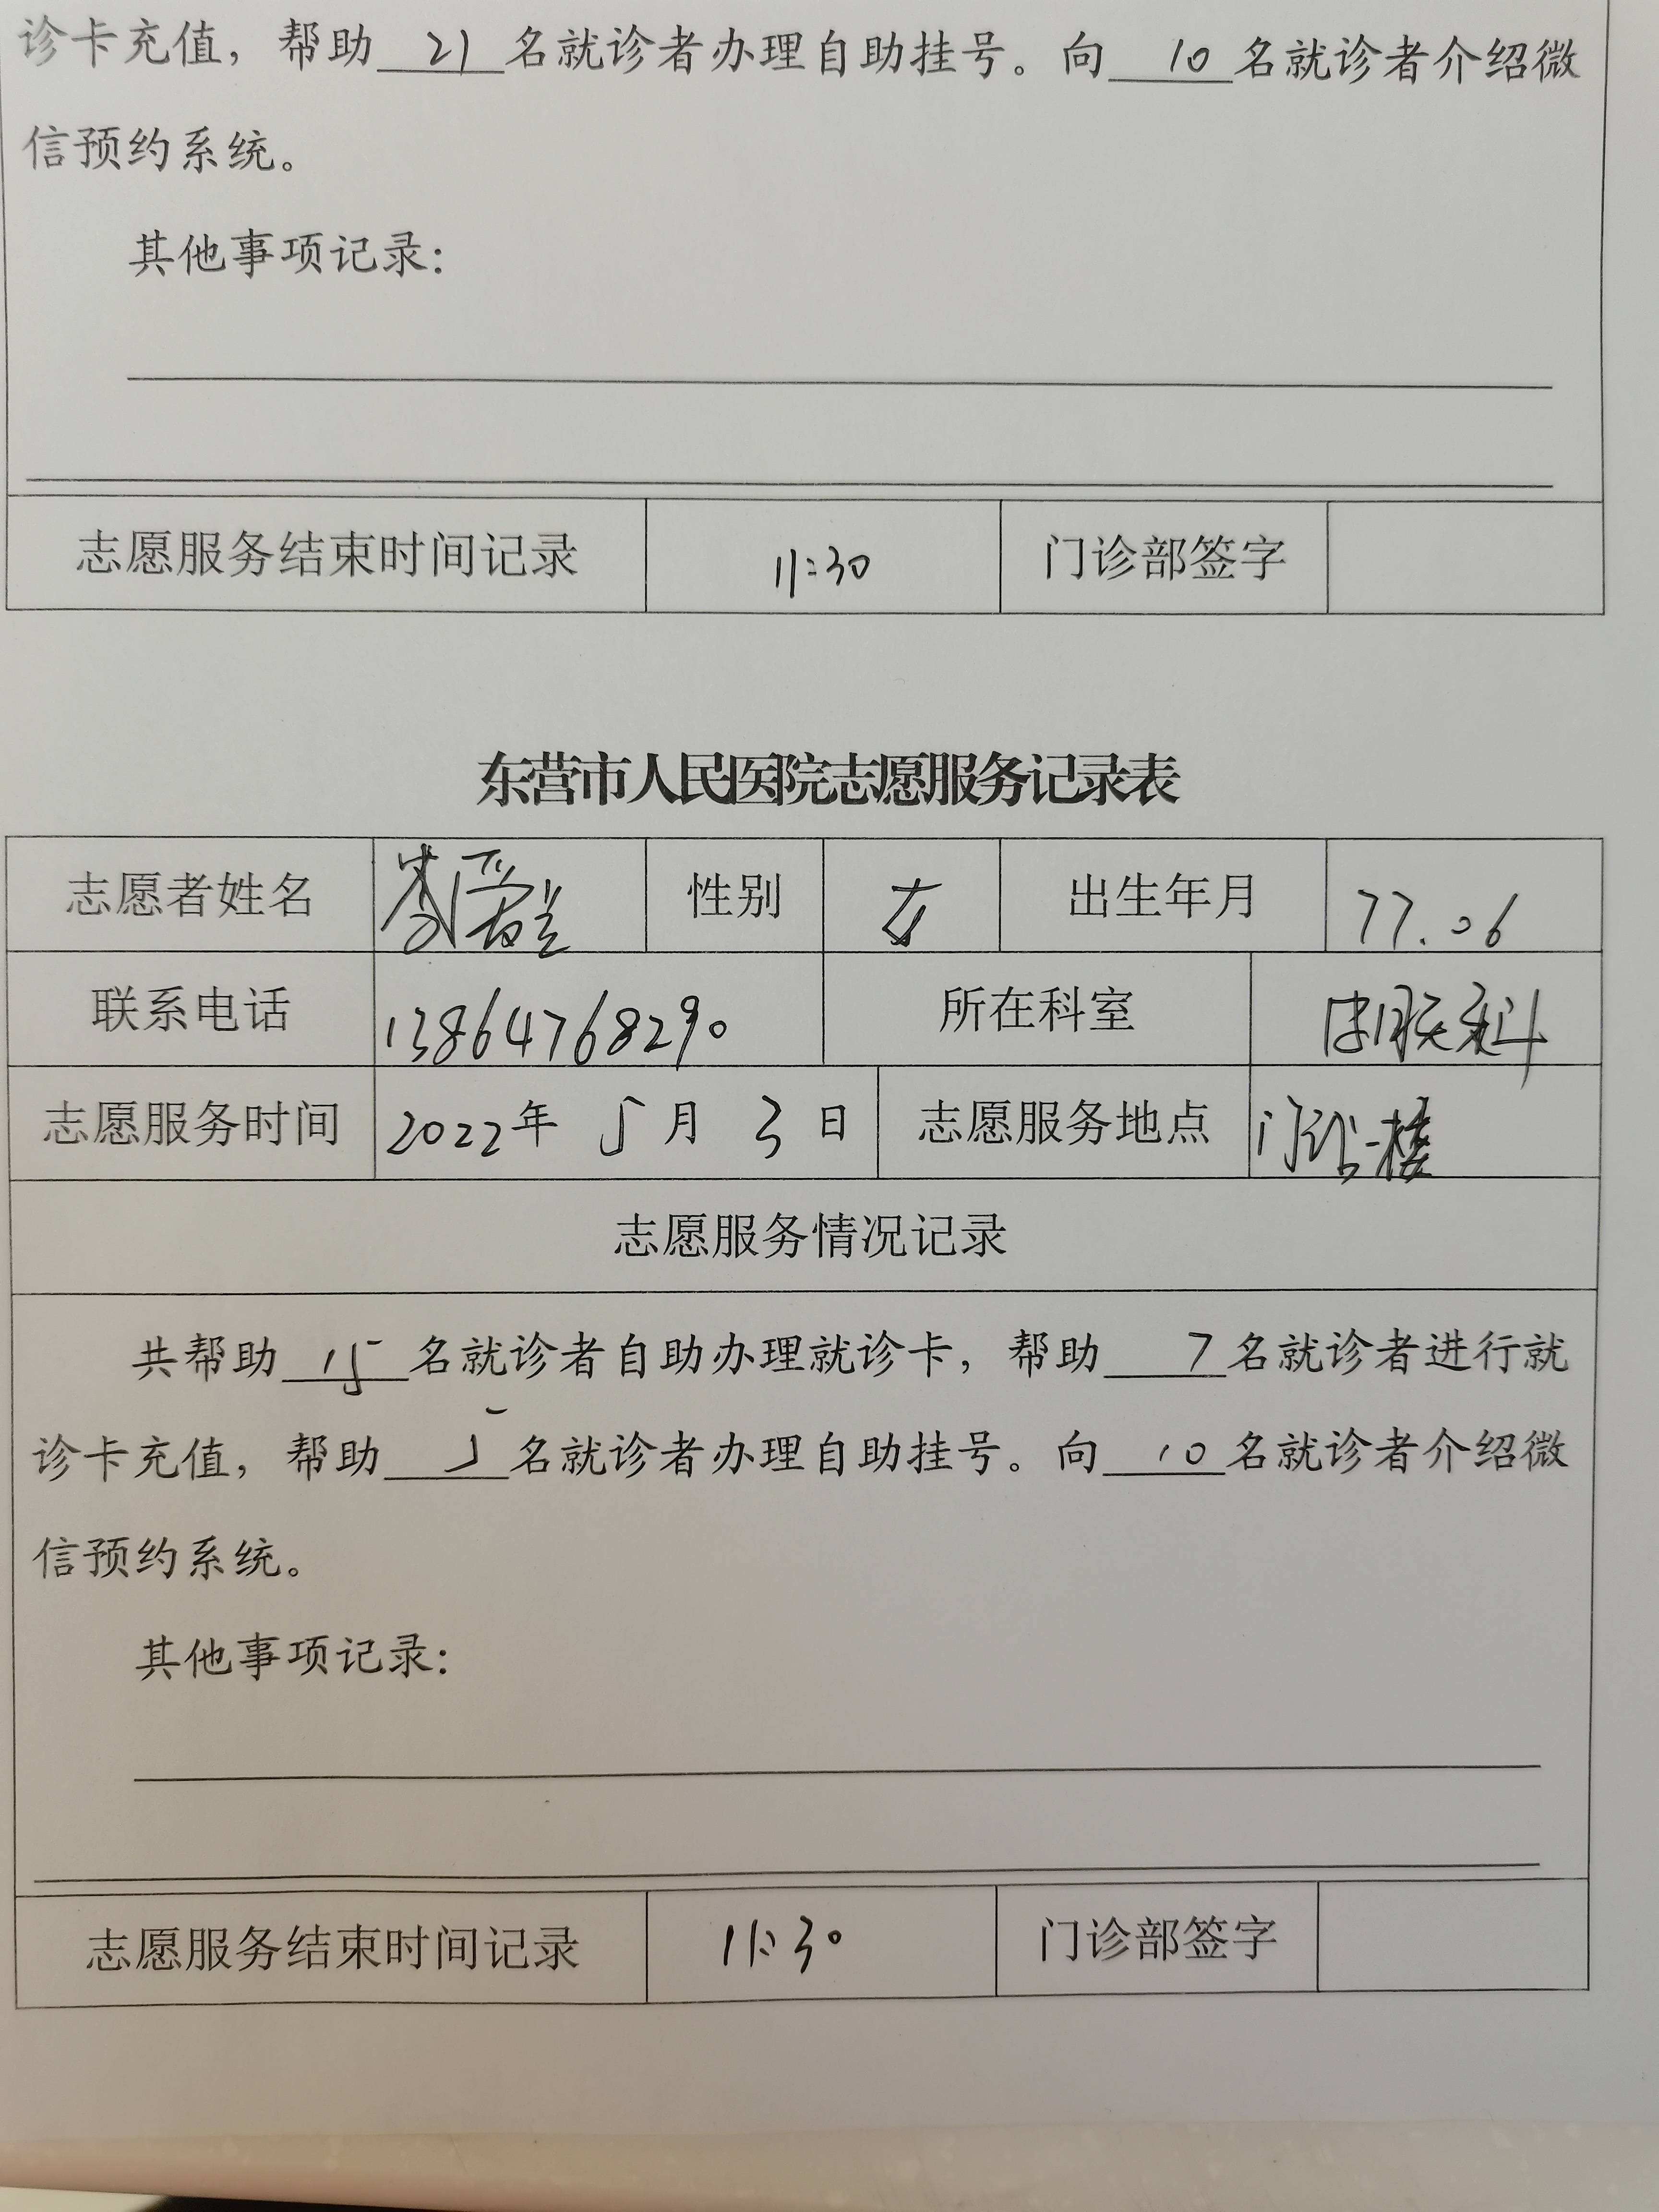 诊卡充值，帮助 21 名就诊者办理自助挂号。向 10 名就诊者介绍微
信预约系统。
其他事项记录：
志愿服务结束时间记录 11:30 门诊部签字
东营市人民医院志愿服务记录表
志愿者姓名 性别 女 出生年月 77.06
联系电话 13864768290 所在科室 科
志愿服务时间 2022年 5月 3日 志愿服务地点 门诊一楼
志愿服务情况记录
共帮助 15 名就诊者自助办理就诊卡，帮助 7 名就诊者进行就
诊卡充值，帮助 5 名就诊者办理自助挂号。向 10 名就诊者介绍微
信预约系统。
其他事项记录：
志愿服务结束时间记录 11:30 门诊部签字